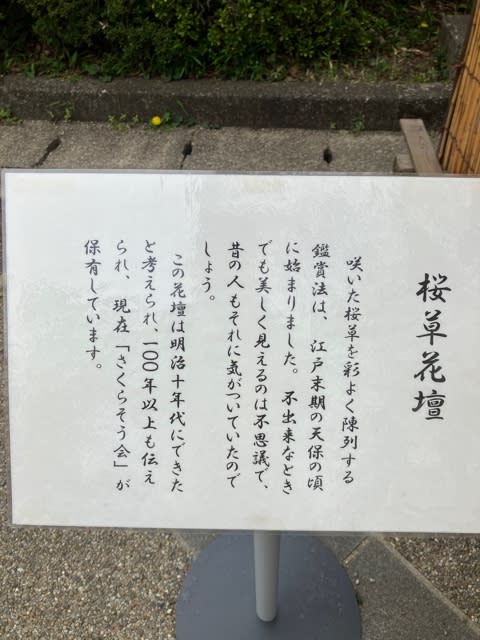 桜草花壇
咲いた桜草を彩よく陳列する
鑑賞法は、江戸末期の天保の頃
に始まりました。不出来なとき
でも美しく見えるのは不思議で、
昔の人もそれに気がついていたので
しょう。
この花壇は明治十年代にできた
と考えられ、一〇〇年以上も伝え
られ、現在「さくらそう会」が
保有しています。